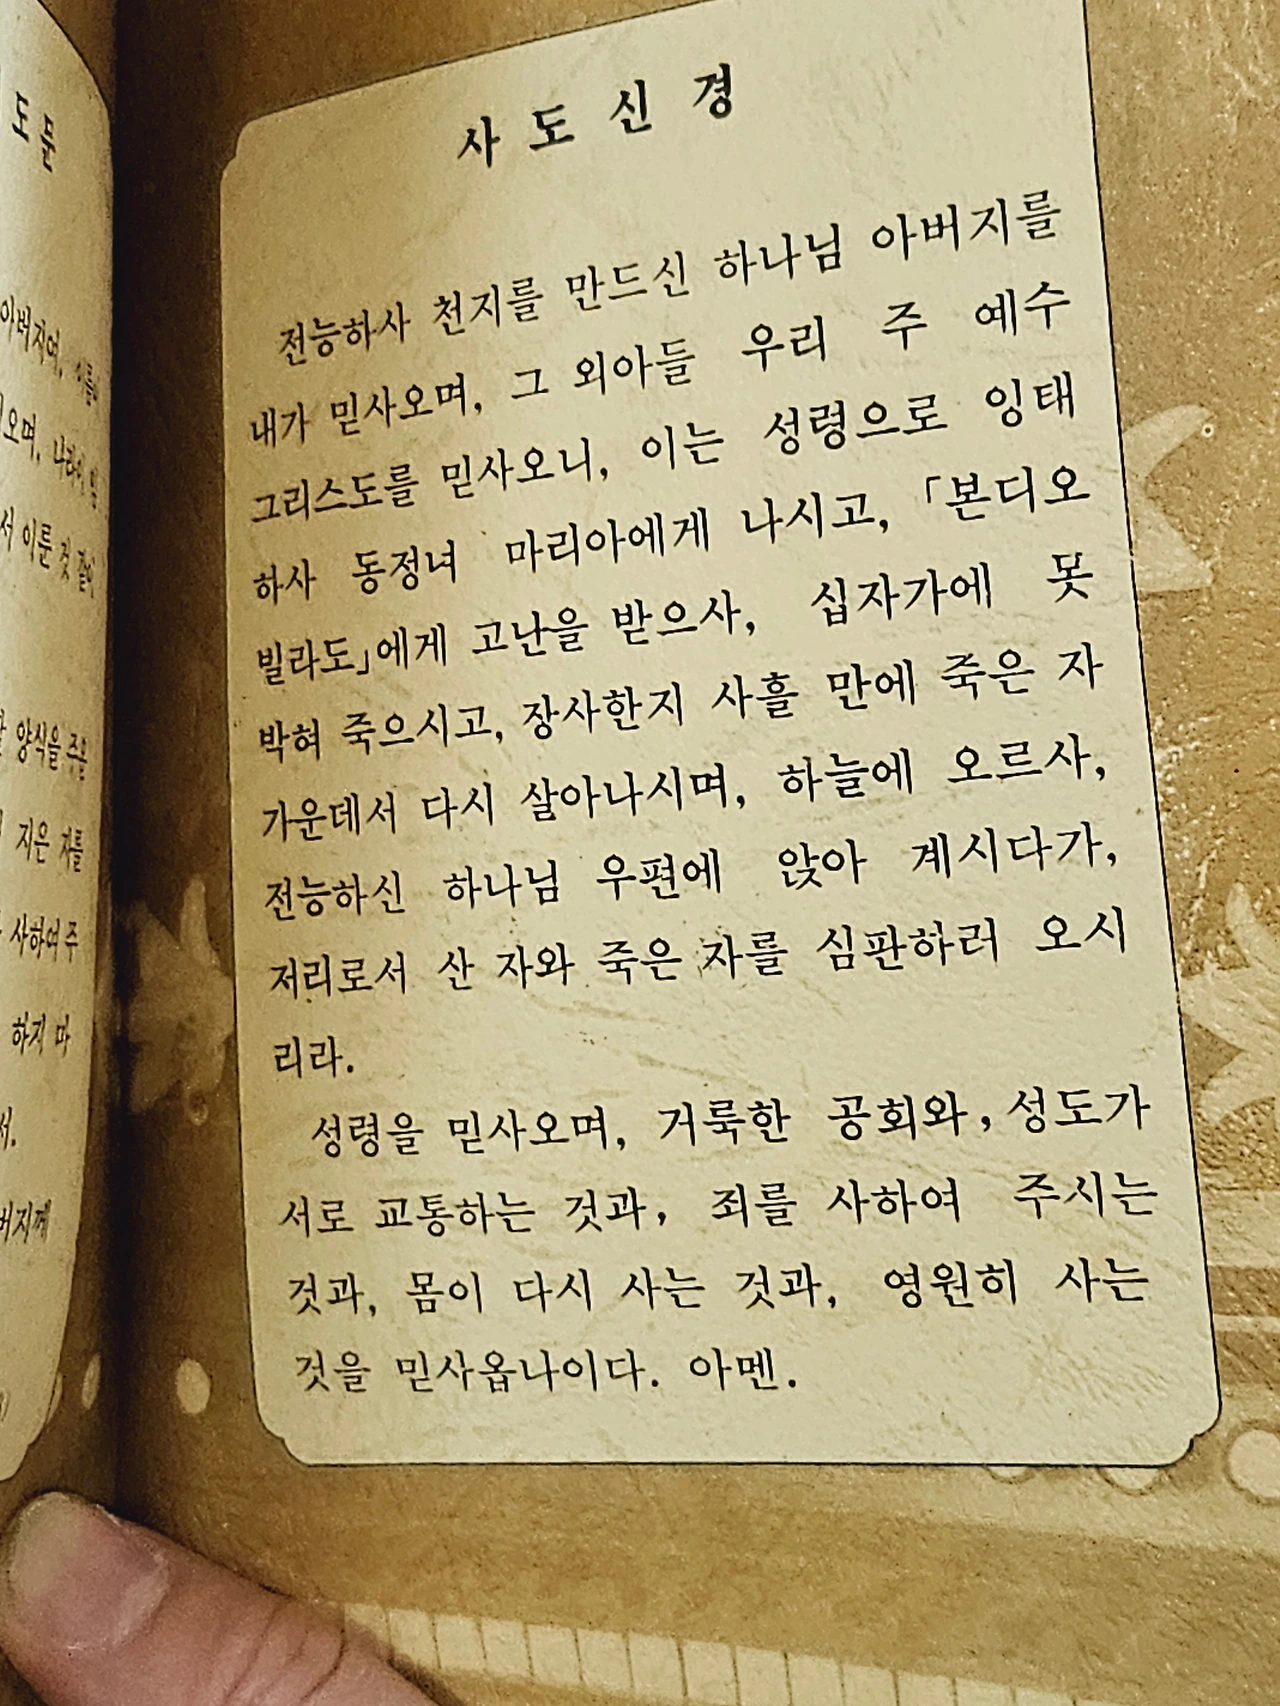 도문
아버지여,
오며, 나라이
서 이룬 것 같이
양식을 주옵
지은 자를
사하여 주
하지 마
서.
버지께
사도신경
전능하사 천지를 만드신 하나님 아버지를
내가 믿사오며, 그 외아들 우리 주 예수
그리스도를 믿사오니, 이는 성령으로 잉태
하사 동정녀 마리아에게 나시고, 「본디오
빌라도」에게 고난을 받으사, 십자가에 못
박혀 죽으시고, 장사한지 사흘 만에 죽은 자
가운데서 다시 살아나시며, 하늘에 오르사,
전능하신 하나님 우편에 앉아 계시다가,
저리로서 산 자와 죽은 자를 심판하러 오시
리라.
성령을 믿사오며, 거룩한 공회와, 성도가
서로 교통하는 것과, 죄를 사하여 주시는
것과, 몸이 다시 사는 것과, 영원히 사는
것을 믿사옵나이다. 아멘.